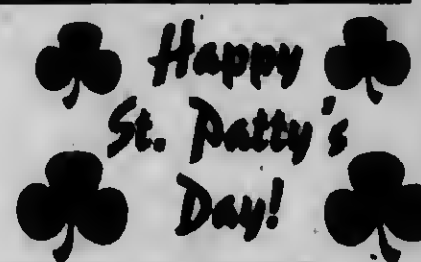 Happy
St. Patty's
Day!